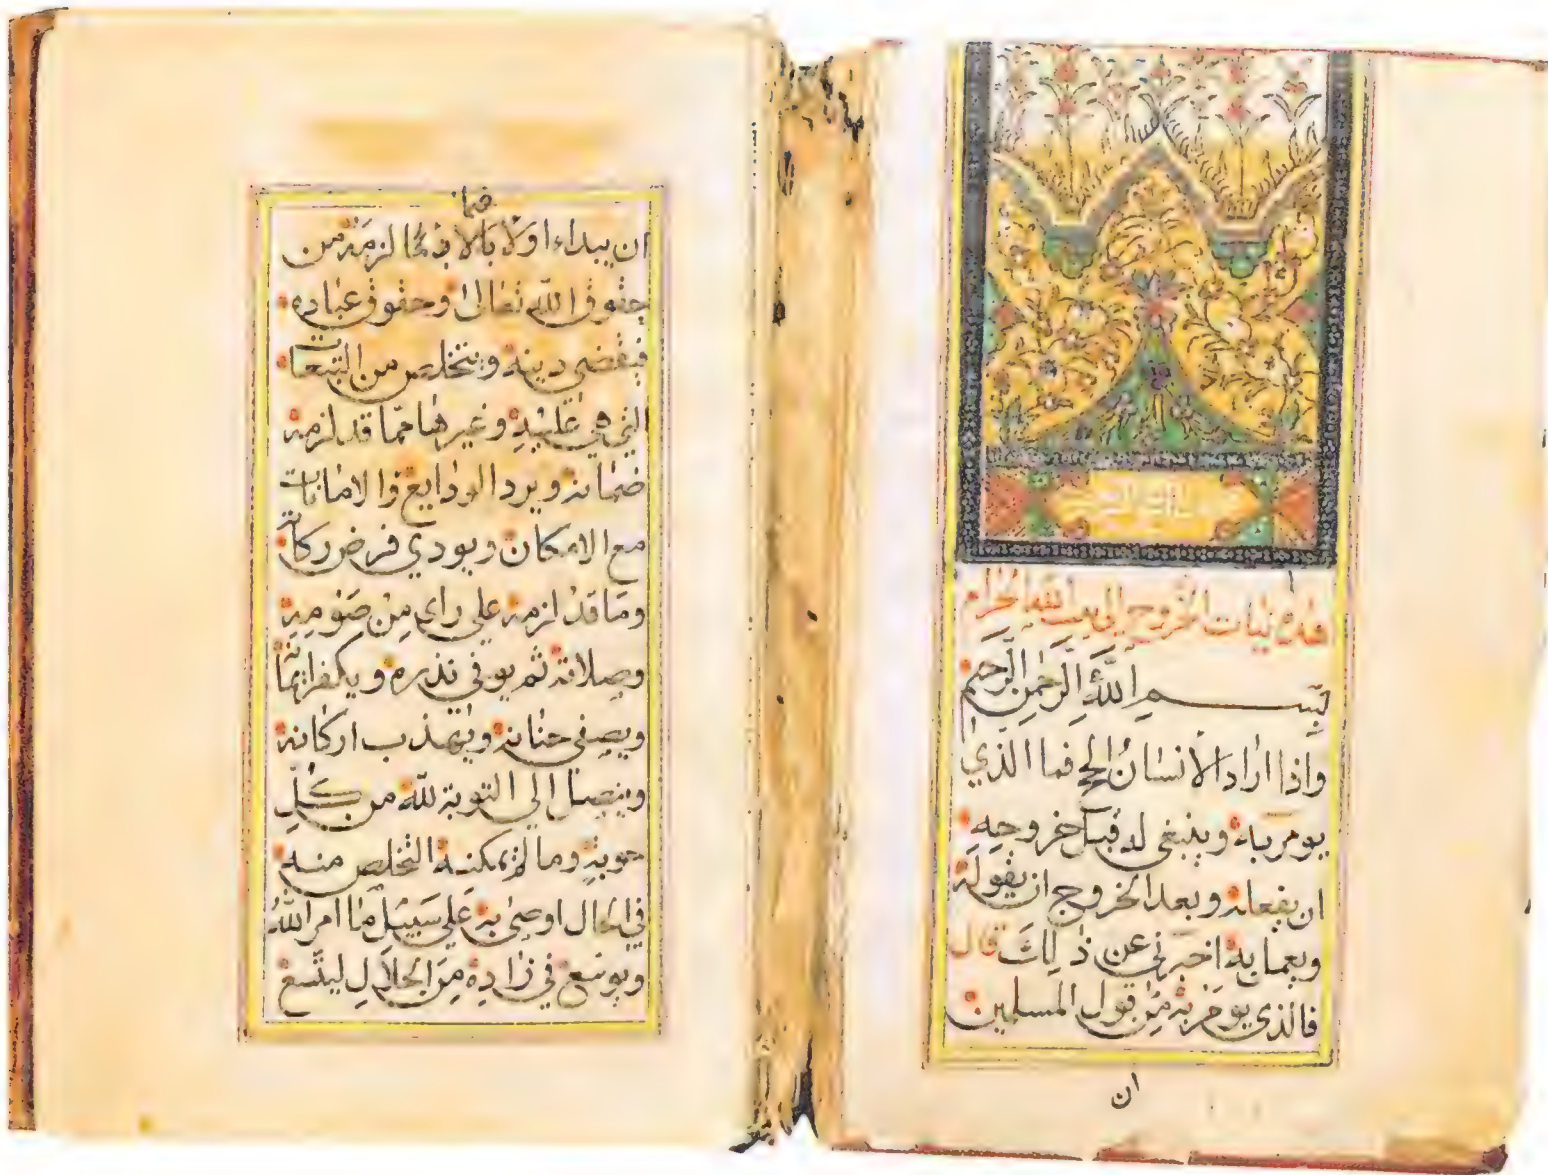 هذه نيات الخروج الى بيت الله الحرام
بسم الله الرحمن الرحيم
واذا اراد الانسان الحج فما الذي
يومر به وينبغي له قبل خروجه
ان يفعله وبعد الخروج ان يقوله
ويعمل به اخبرني عن ذلك قال
فالذي يومر به من قول المسلمين
ان
ان يبداء اولا بالا فيما لزمه من
حقوق الله تعالى وحقوق عباده
فيقضي دينه ويتخلص من التبعات
التي هي عليه وغيرها مما قد لزمه
ضمانه ويرد الودايع والامانات
مع الامكان ويودي فرض زكاته
وما قد لزمه على راي من صومه
وصلاته ثم يوفي نذره ويكفر ايمانه
ويصفي جنانه ويهذب اركانه
وينصل الي التوبة لله من كل
حوبة وما لم يمكنه التخلص منه
في الحال اوصى به على سبيل ما امر الله
ويوسع في زاده من الحلال ليتسع